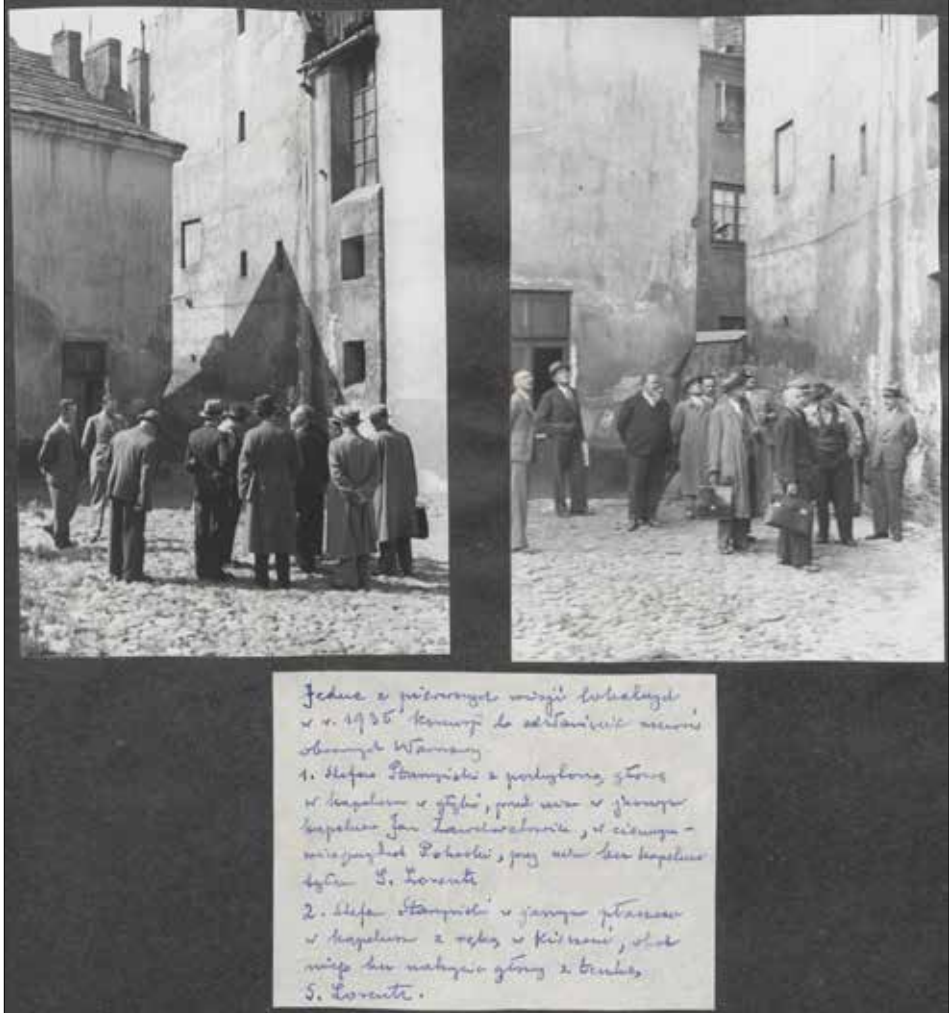 Jedna z pierwszych wizji lokalnych
w r. 1935 komisji do odsłonięcia murów
obronnych Warszawy
1. Stefan Starzyński z pochyloną głową
w kapeluszu w głębi, przed nim w jasnym
kapeluszu Jan Zachwatowicz, w ciemnym –
Pokorski, przy nim bez kapelusza
tyłem S. Lorentz
2. Stefan Starzyński w jasnym płaszczu
w kapeluszu z ręką w kieszeni, obok
niego bez nakrycia głowy z teczką
S. Lorentz.